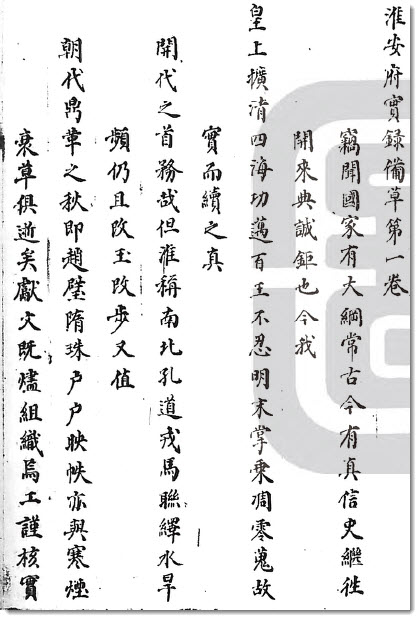 淮安府實錄備草第一卷
竊聞國家有大綱常古今有真信史繼徃
開來典誠鉅也今我
皇上擴清四海功邁百王不忍明末掌乗凋零蒐故
實而續之真
開代之首務哉但淮稱南北孔道戎馬聯繹水旱
頻仍且改玉改步又值
朝代鼎革之秋即趙璧隋珠戶戶映帙亦與寒煙
衰草俱逝矣獻文既燼組織烏工謹核實